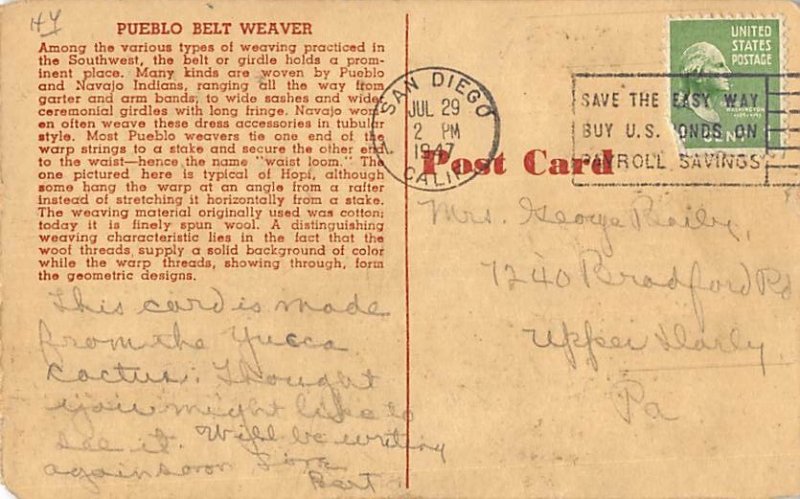 44
PUEBLO BELT WEAVER
Among the various types of weaving practiced in
the Southwest, the belt or girdle holds a prom-
inent place. Many kinds are woven by Pueblo
and Navajo Indians, ranging all the way from
garter and arm bands, to wide sashes and wider
ceremonial girdles with long fringe. Navajo wom-
en often weave these dress accessories in tubular
style. Most Pueblo weavers tie one end of the
warp strings to a stake and secure the other end
to the waist—hence the name "waist loom." The
one pictured here is typical of Hopi, although
some hang the warp at an angle from a rafter
instead of stretching it horizontally from a stake.
The weaving material originally used was cotton;
today it is finely spun wool. A distinguishing
weaving characteristic lies in the fact that the
woof threads supply a solid background of color
while the warp threads, showing through, form
the geometric designs.
This card is made
from the Yucca
cactus. Thought
you might like to
see it. Will be writing
again soon
Bert
SAN DIEGO
JUL 29
2 PM
1947
CALIF.
UNITED
STATES
POSTAGE
WASHINGTON
CENT
SAVE THE EASY WAY
BUY U.S. BONDS ON
PAYROLL SAVINGS
Post Card
Mrs. George
7240 Bradford Rd
Upper Darby
Pa